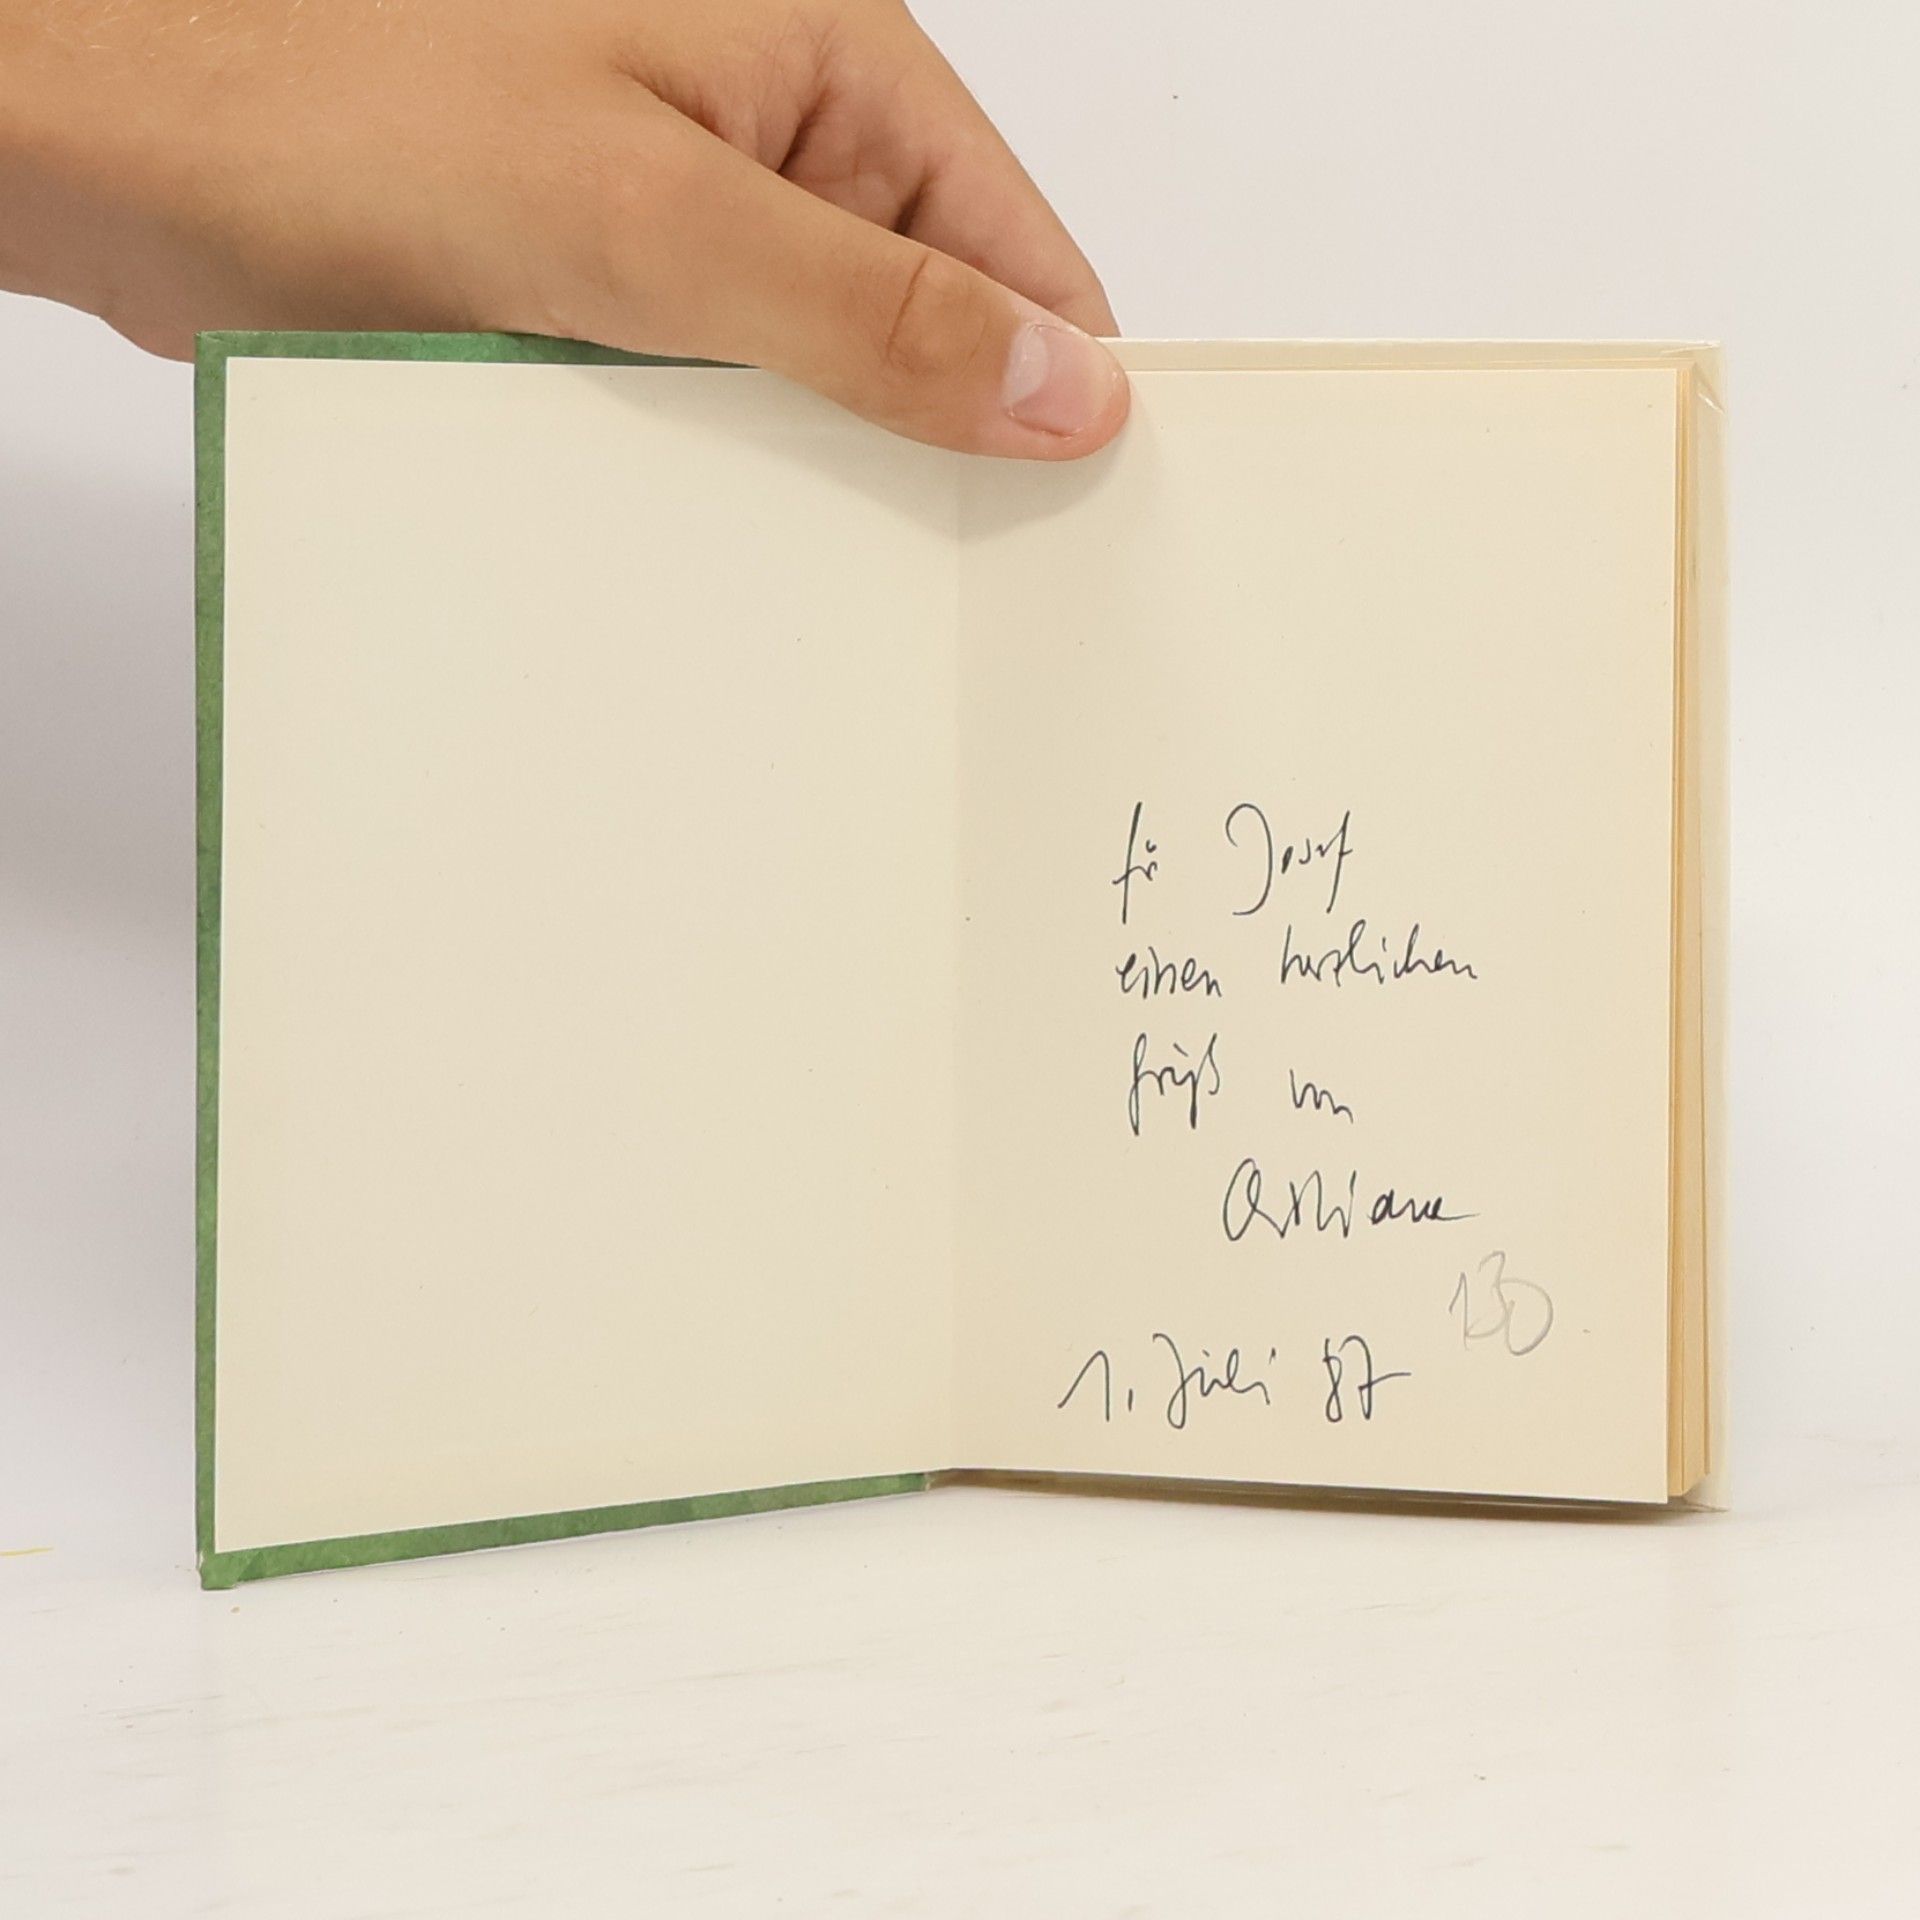 für Josef
einen herzlichen
Gruß von
130
1. Juli 87